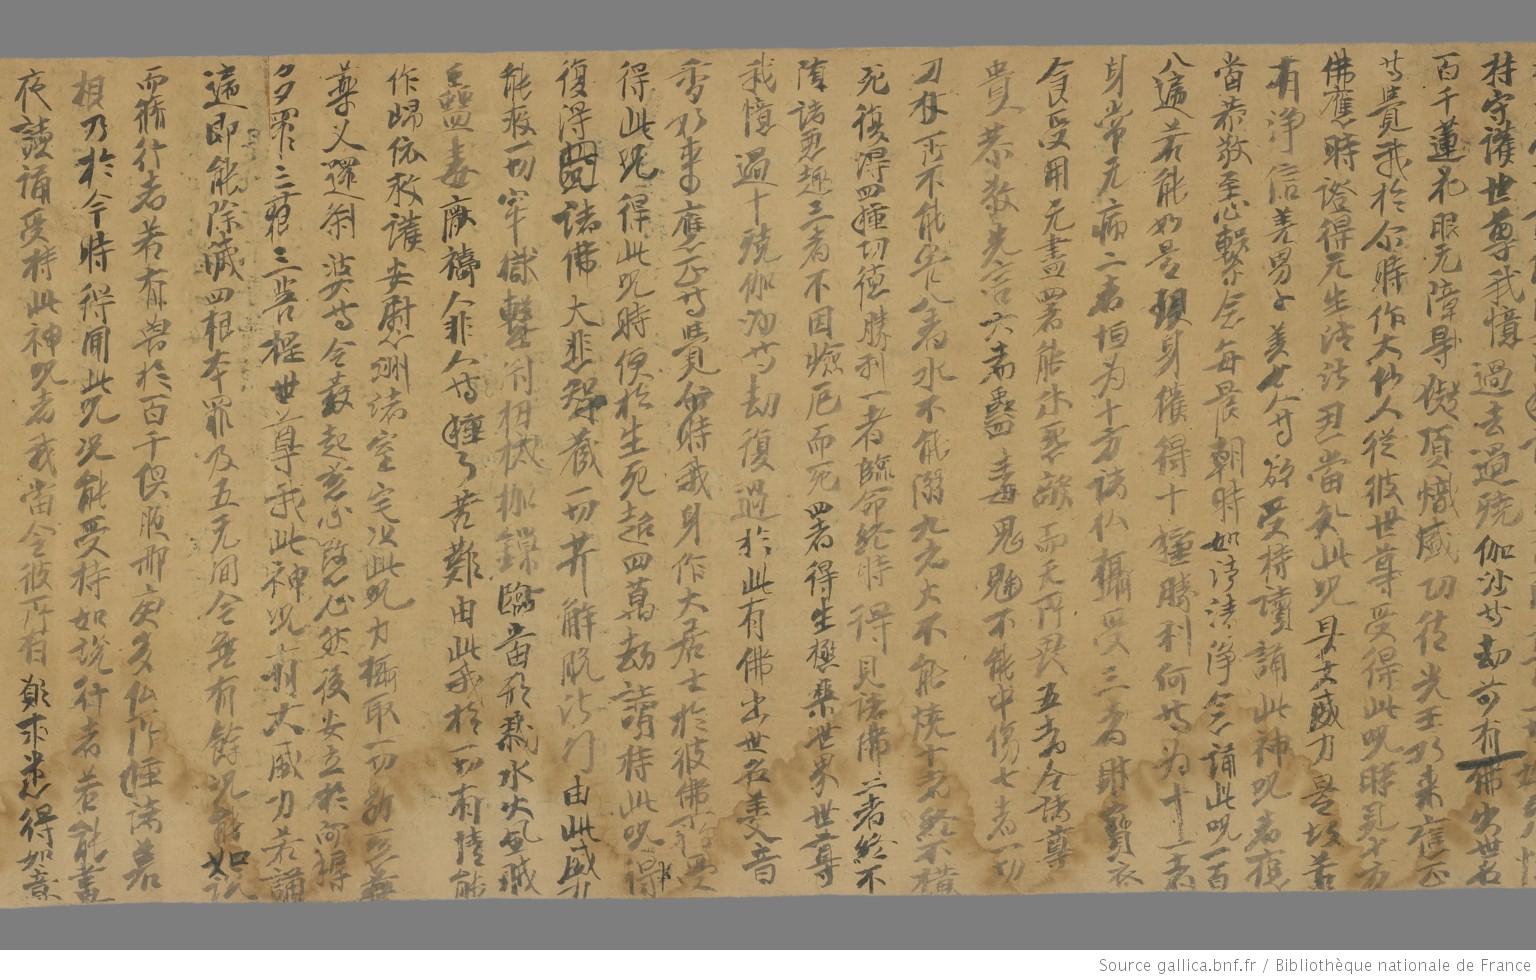 持守護世尊我憶過去過殑伽沙等劫前有佛出世名
百千蓮花眼无障㝵頂熾盛功德光王如來應正
等覺我於尒時作大仙人從彼世尊受得此呪時見十方
佛應時證得无生法忍當知此呪具大威力是故若
有淨信善男子善女人等欲受持讀誦此神呪者應
當恭敬至心繫念每晨朝時如清法淨念誦此呪一百
八遍若能如是現身獲得十種勝利何等為十一者
身常无病二者恒為十方諸仏攝受三者財寶衣
食受用无盡四者能伏怨敵而无所畏五者令諸尊
貴恭敬先言六者蠱毒鬼魅不能中傷七者一切
刀杖所不能害八者水不能溺九者火不能燒十者終不橫
死復得四種功德勝利一者臨命終時得見諸佛二者終不
墮諸惡趣三者不因嶮厄而死四者得生極樂世界世尊
我憶過十殑伽沙等劫復過於此有佛出世名美音
香如來應正等覺尒時我身作大居士於彼佛所受
得此呪得此呪時便於生死超四萬劫誦持此呪得
復得諸佛大悲智藏一切菩解脫法門由此威力
能救一切牢獄繫閇杻械枷鎖臨當形戮水火風賊
蠱毒厭禱人非人等種々苦難由此我於一切有情能
作歸依救護安慰洲渚室宅以此呪力攝取一切
藥叉邏剎娑等令發起慈心愍心然後安立於阿耨
多羅三藐三菩提世尊我此神呪有大威力若誦
遍即能除滅四根本罪及五无間令無有餘況能如說
而脩行者若有曾於百千俱胝那庾多仏所種諸善
根乃於今時得聞此呪況能受持如說行者若能晝
夜讀誦受持此神呪者我當令彼所有願求悉得如意
Source gallica.bnf.fr / Bibliothèque nationale de France